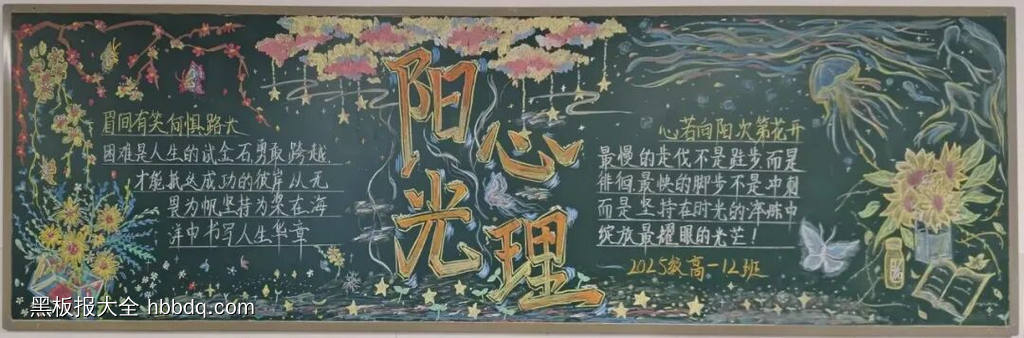 阳光
心理
眉间有笑何惧路大
困难是人生的试金石勇敢跨越.
才能抵达成功的彼岸从无
畏为帆坚持为桨在海
洋中书写人生华章
心若向阳次第花开
最慢的步伐不是跬步而是
徘徊最快的脚步不是冲刺
而是坚持在时光的淬炼中
绽放最耀眼的光芒!
2025级高一12班
黑板报大全 hbbdq.com